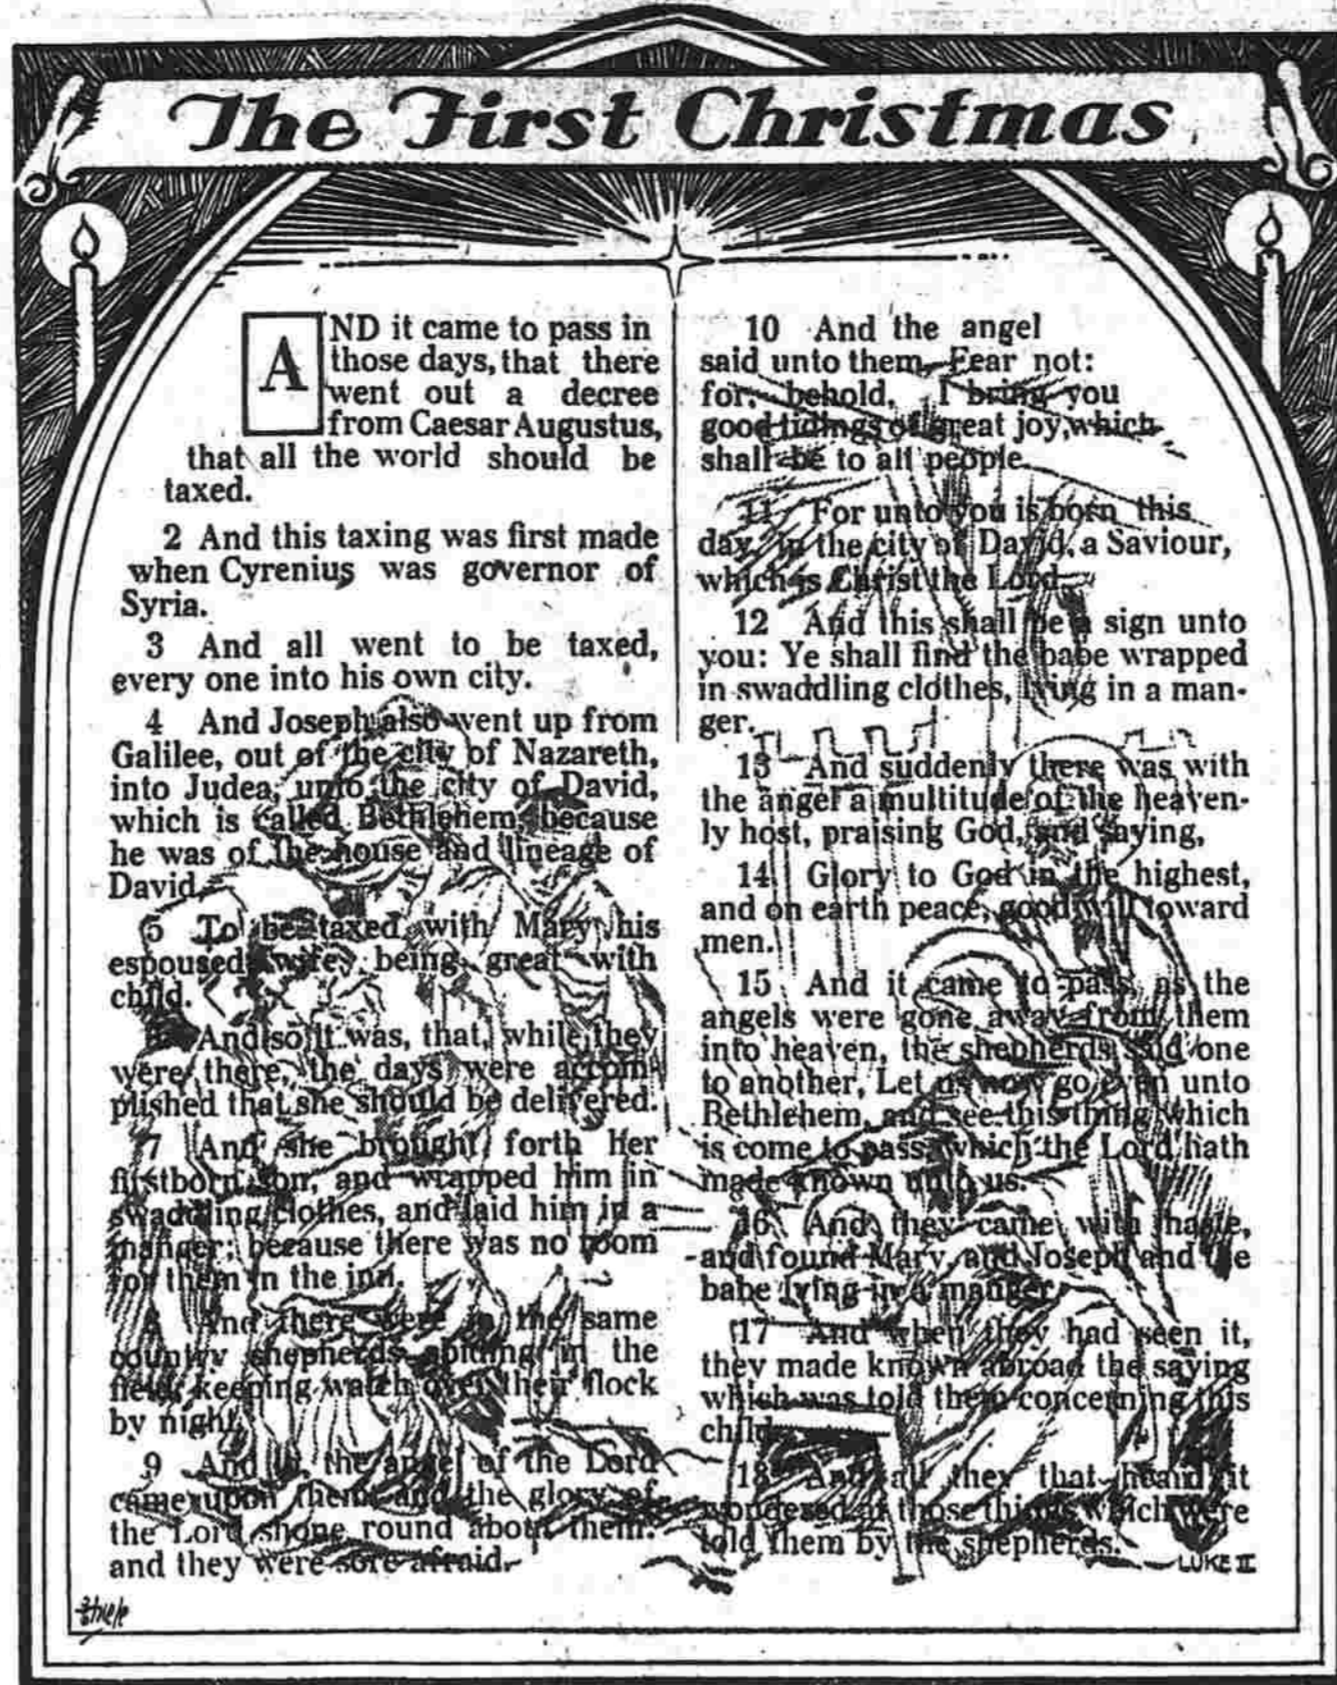 The First Christmas
AND it came to pass in
those days, that there
went out a decree
from Caesar Augustus,
that all the world should be
taxed.
2 And this taxing was first made
when Cyrenius was governor of
Syria.
3 And all went to be taxed,
every one into his own city.
4 And Joseph also went up from
Galilee, out of the city of Nazareth,
into Judea, unto the city of David,
which is called Bethlehem; because
he was of the house and lineage of
David.
5 To be taxed with Mary his
espoused wife, being great with
child.
And so it was, that, while they
were there, the days were accom-
plished that she should be delivered.
7 And she brought forth her
firstborn son, and wrapped him in
swaddling clothes, and laid him in a
manger; because there was no room
for them in the inn.
8 And there were in the same
country shepherds abiding in the
field, keeping watch over their flock
by night.
9 And lo, the angel of the Lord
came upon them, and the glory of
the Lord shone round about them:
and they were sore afraid.
10 And the angel
said unto them, Fear not:
for, behold, I bring you
good tidings of great joy, which
shall be to all people.
11 For unto you is born this
day, in the city of David, a Saviour,
which is Christ the Lord.
12 And this shall be a sign unto
you: Ye shall find the babe wrapped
in swaddling clothes, lying in a man-
ger.
13 And suddenly there was with
the angel a multitude of the heaven-
ly host, praising God, and saying,
14 Glory to God in the highest,
and on earth peace, good will toward
men.
15 And it came to pass, as the
angels were gone away from them
into heaven, the shepherds said one
to another, Let us now go even unto
Bethlehem, and see this thing which
is come to pass, which the Lord hath
made known unto us.
16 And they came with haste,
and found Mary, and Joseph and the
babe lying in a manger.
17 And when they had seen it,
they made known abroad the saying
which was told them concerning this
child.
18 And all they that heard it
wondered at those things which were
told them by the shepherds.
LUKE II